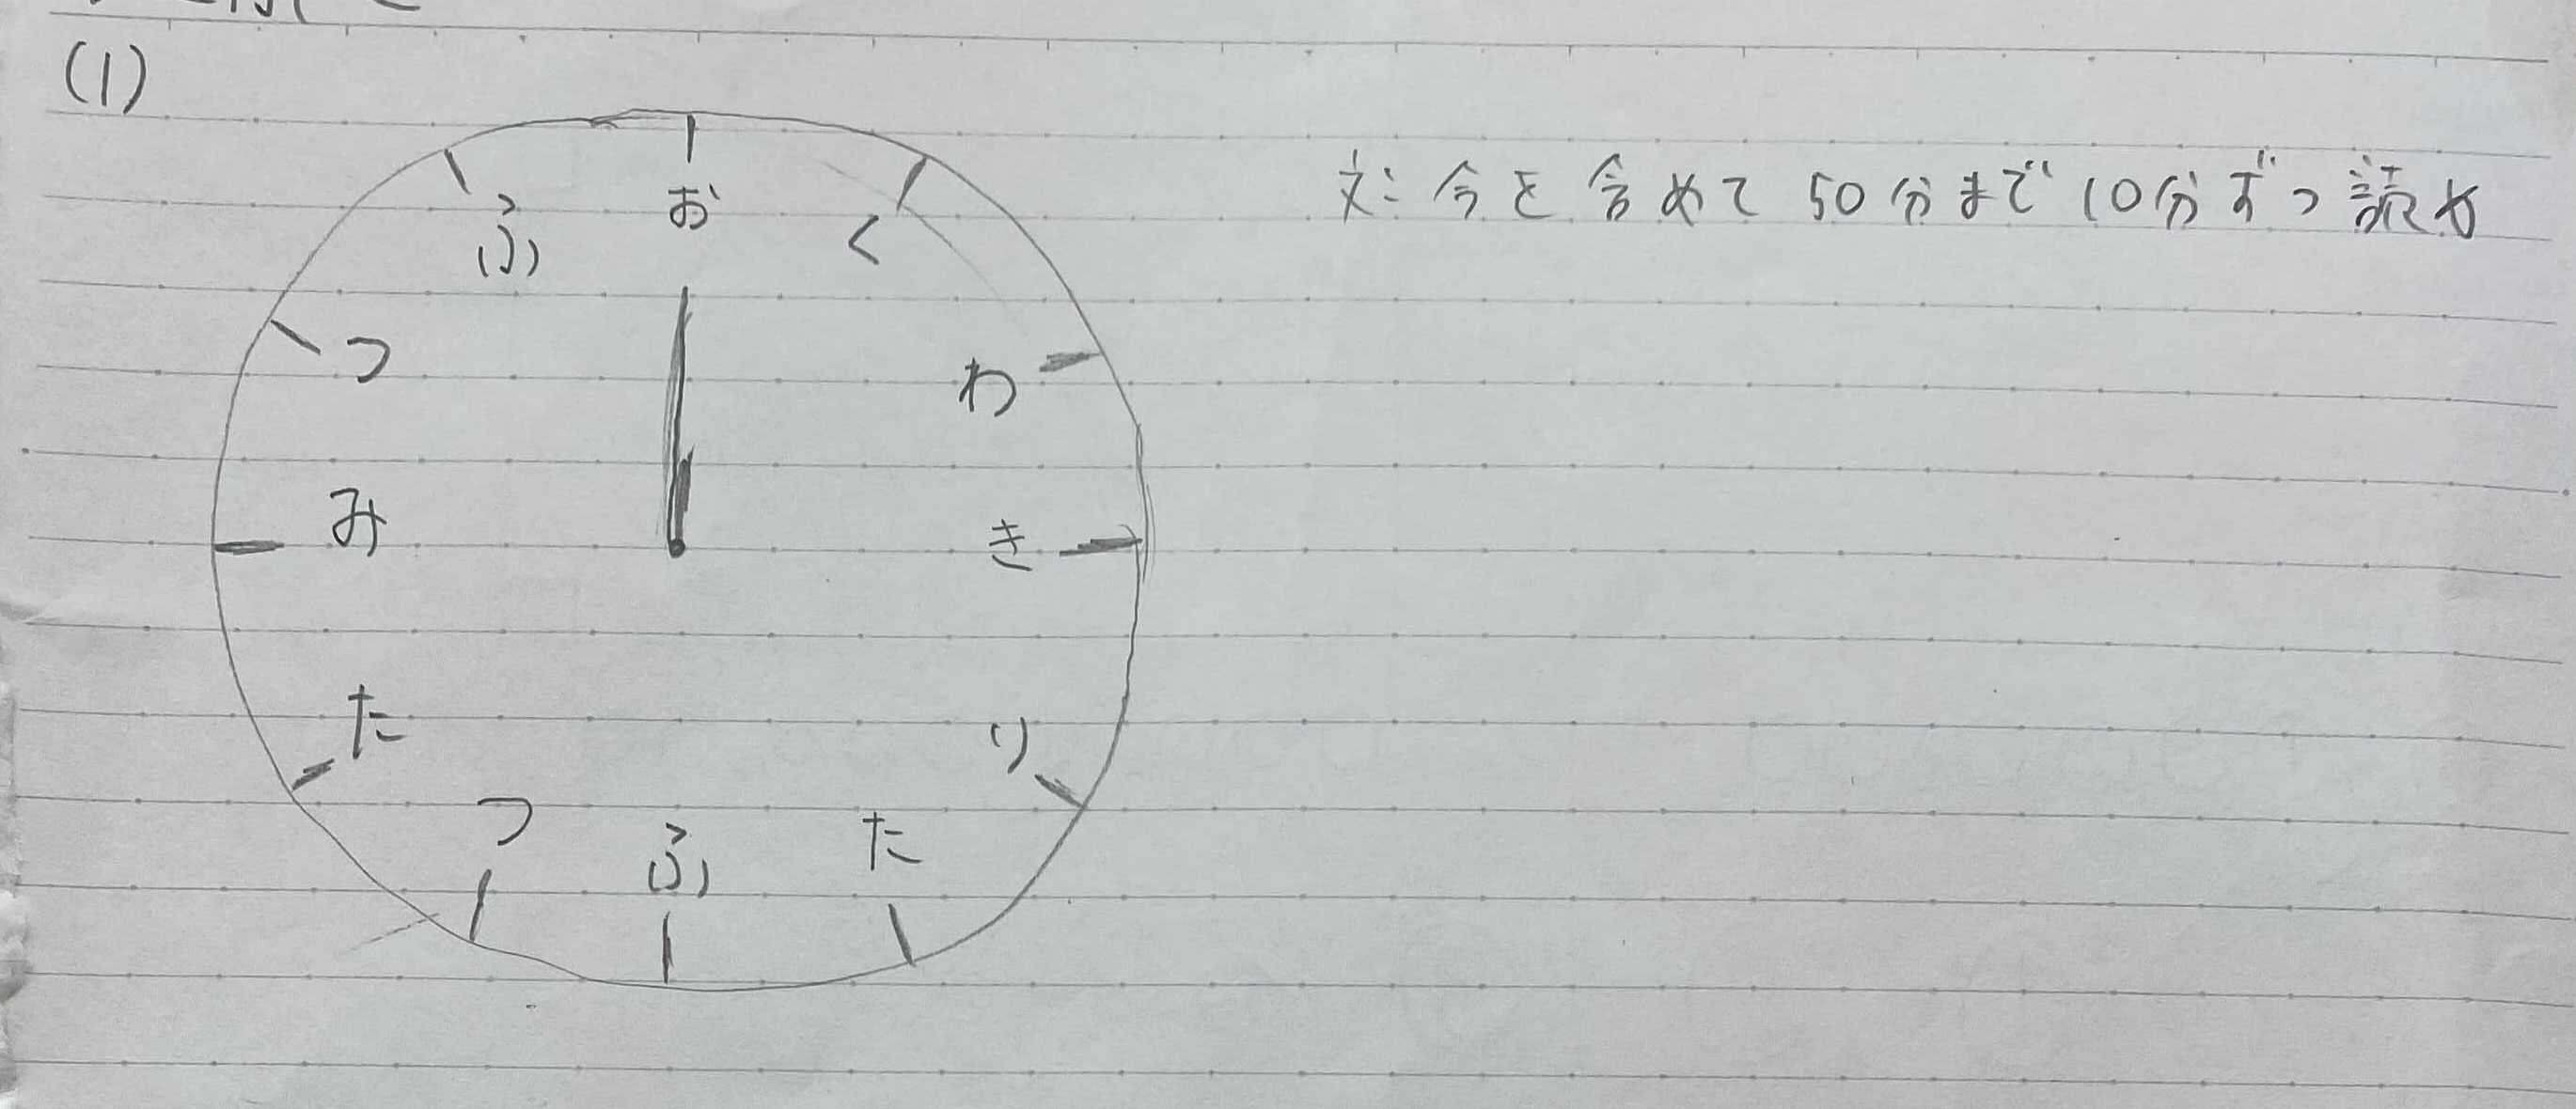 (1)
お
く
わ
き
り
た
ふ
つ
た
み
つ
ふ
文:今を含めて50分まで10分ずつ読め